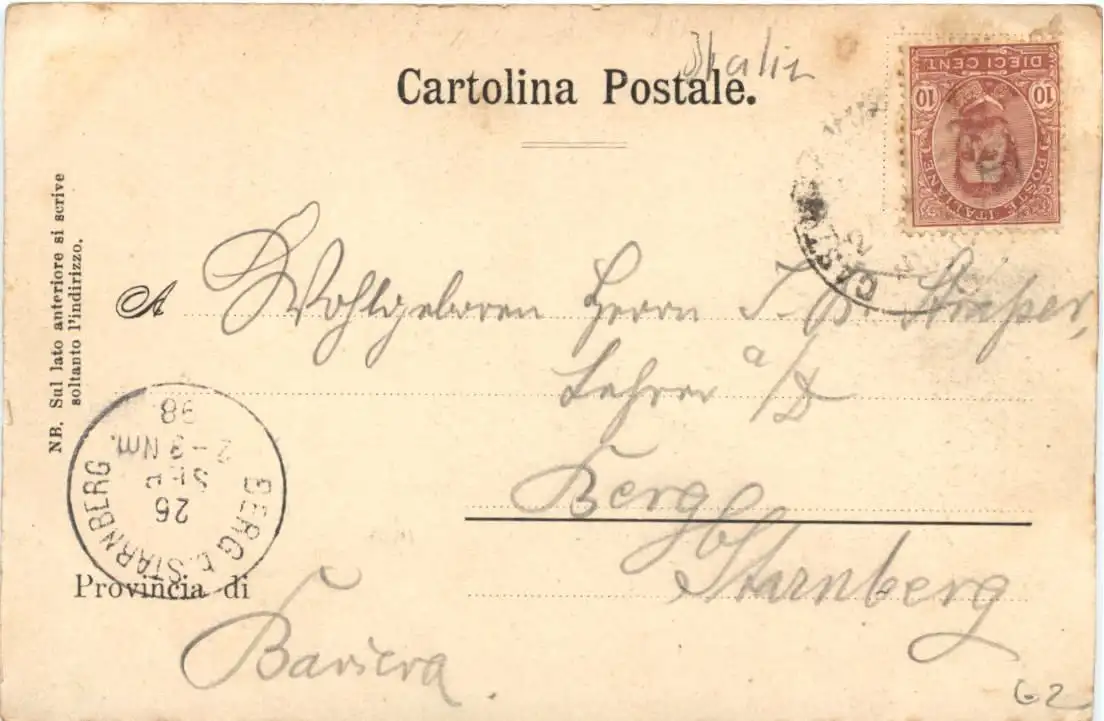 Italia
Cartolina Postale.
DIECI CENT.
10 10
POSTE ITALIANE
NB. Sul lato anteriore si scrive
soltanto l'indirizzo.
A Wohlgeboren Herrn J. B.
Lehrer a/D
Berg
b/Starnberg
BERG b. STARNBERG
26
SEP
2-3 Nm.
98
Provincia di
Baviera.
G2